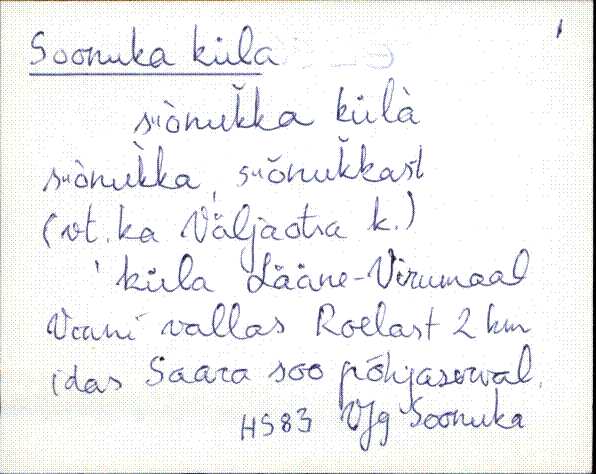 Soonuka küla
süònuk̆ka külà
süònuk̆ka, süŏnuk̆kast
(vt. ka Väljaotsa k.)
' küla Lääne-Virumaal
Vinni vallas Roelast 2 km
idas Saara soo põhjaserval.
HS83 VJg Soonuka